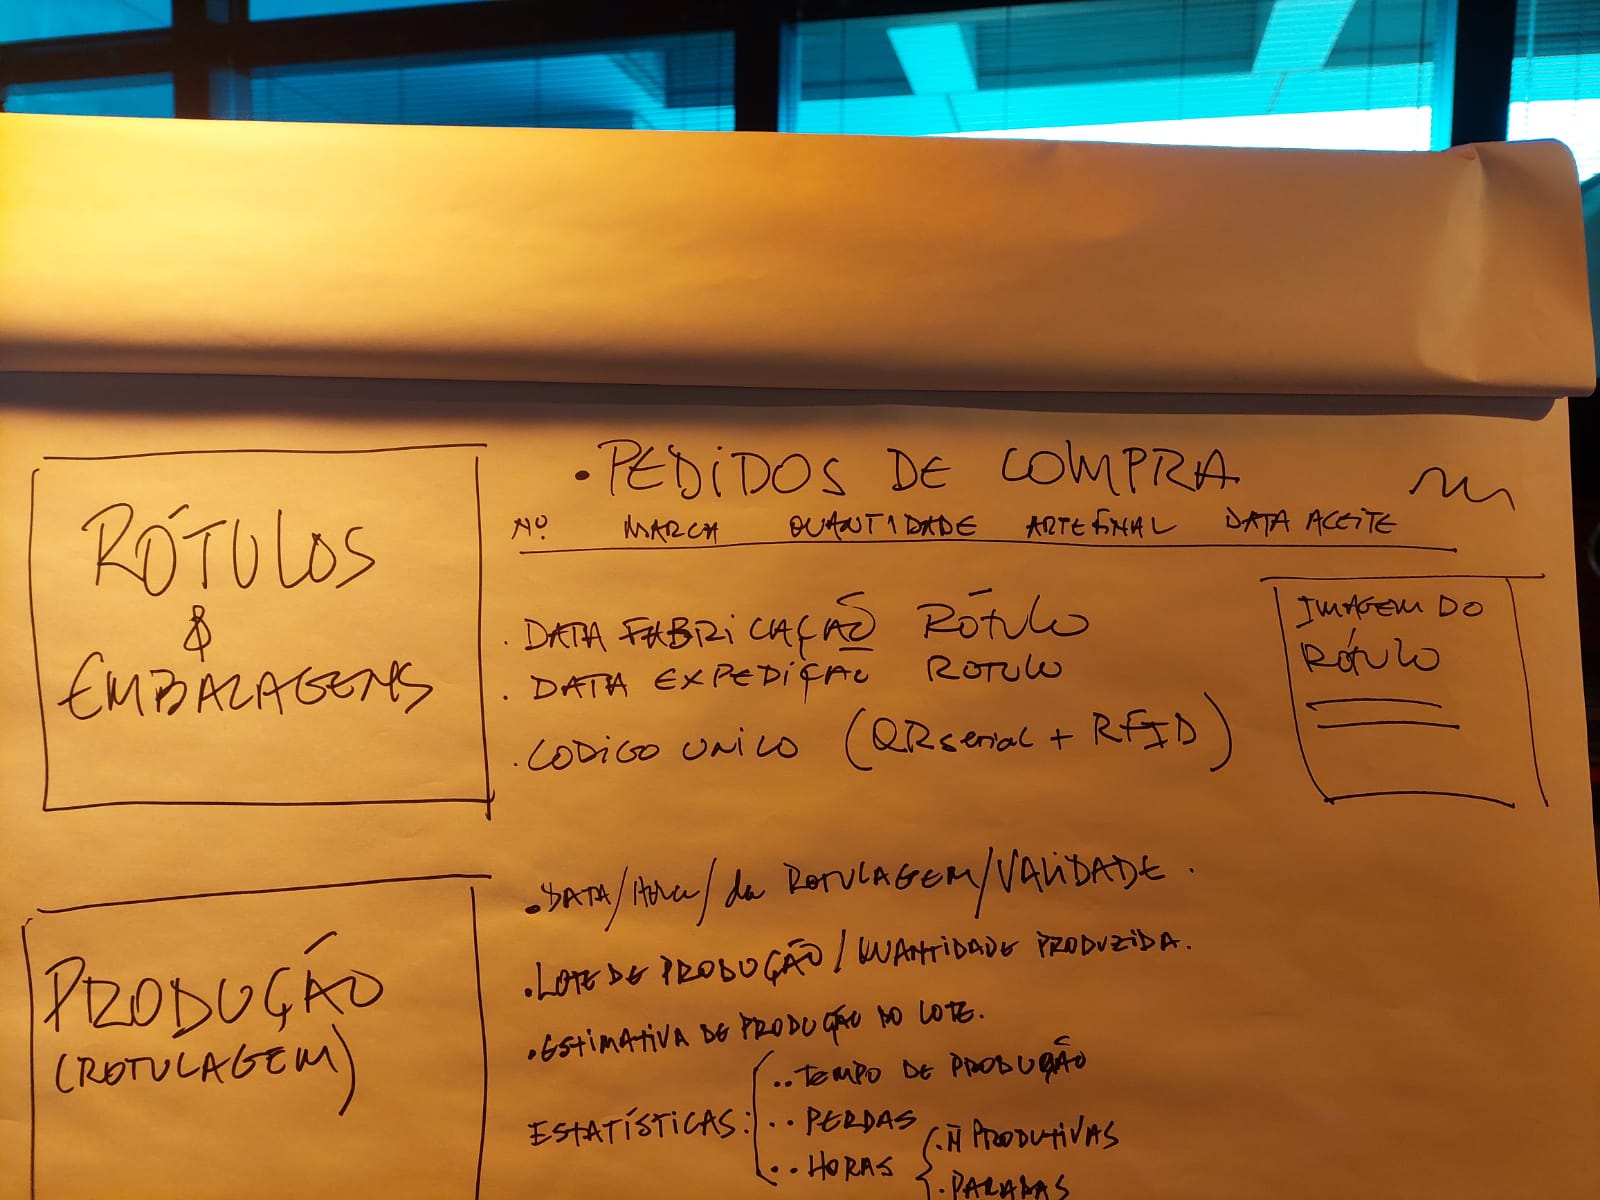 RÓTULOS
&
EMBALAGENS
• PEDIDOS DE COMPRA
Nº MARCA QUANTIDADE ARTE FINAL DATA ACEITE
. DATA FABRICAÇÃO RÓTULO
. DATA EXPEDIÇÃO ROTULO
. CODIGO UNICO (QRserial + RFID)
IMAGEM DO
RÓTULO
PRODUÇÃO
(ROTULAGEM)
• DATA/Hora/da ROTULAGEM/VALIDADE.
• LOTE DE PRODUÇÃO/QUANTIDADE PRODUZIDA.
• ESTIMATIVA DE PRODUÇÃO DO LOTE.
ESTATÍSTICAS:
.. TEMPO DE PRODUÇÃO
.. PERDAS
.. HORAS
. Ñ PRODUTIVAS
. PARADAS